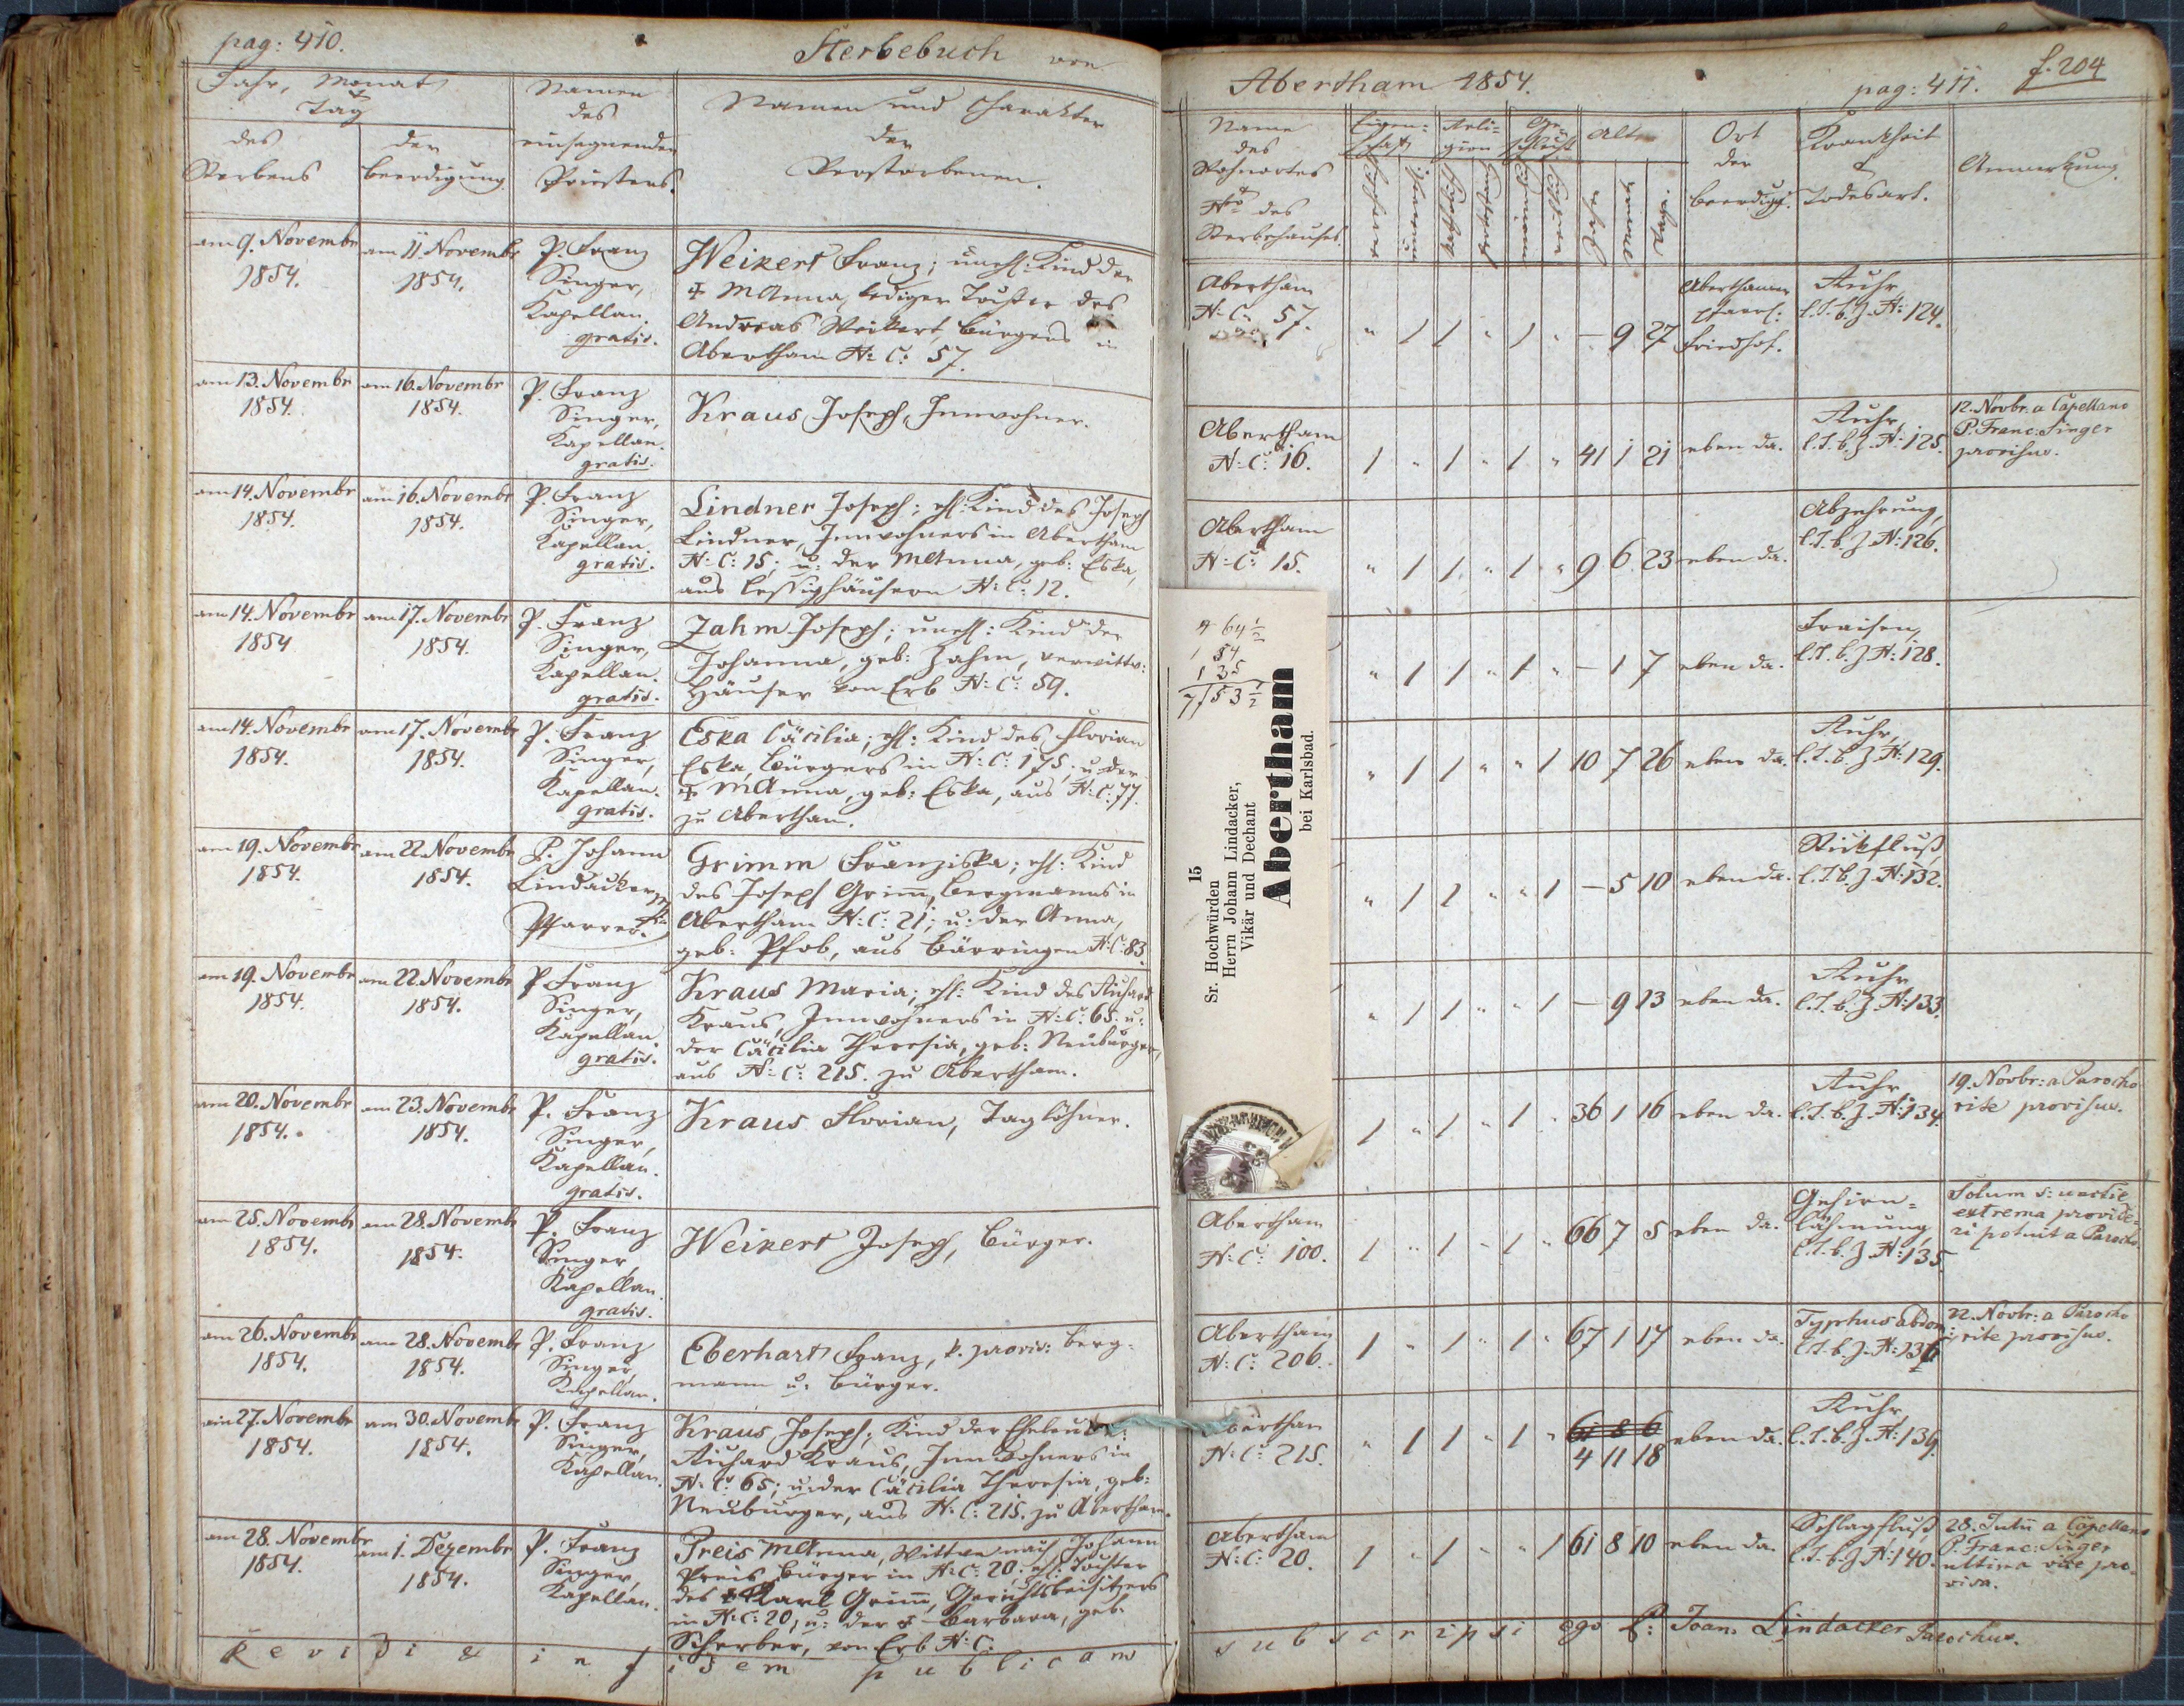 pag: 410.
Sterbebuch von
Jahr, Monat
&
Tag
des
Sterbens
der
Beerdigung
Namen
des
einsegnenden
Priesters.
Namen und Charakter
der
Verstorbenen.
am 9. Novembr
1854.
am 11. Novembr
1854.
P. Franz
Singer,
Kapellan.
gratis.
Weikert Franz; unehl: Kind der
✝ MAnna, lediger Tochter des
Andreas Weikert, Bürgers in
Abertham N: C: 57.
am 13. Novembr
1854.
am 16. Novembr
1854.
P. Franz
Singer,
Kapellan.
gratis.
Kraus Joseph, Innwohner.
am 14. Novembr
1854.
am 16. Novembr
1854.
P. Franz
Singer,
Kapellan.
gratis.
Lindner Joseph; ehl: Kind des Joseph
Lindner, Innwohners in Abertham
N: C: 15; u: der MAnna, geb: Eska,
aus Lessighäusern N: C: 12.
am 14. Novembr
1854
am 17. Novembr
1854.
P. Franz
Singer,
Kapellan.
gratis.
Zahm Joseph; unehl: Kind der
Johanna, geb: Zahm, verwittw:
Häuser von Erb N: C: 59.
am 14. Novembr
1854.
am 17. Novembr
1854.
P. Franz
Singer,
Kapellan.
gratis.
Eska Cäcilia; ehl: Kind des Florian
Eska, Bürgers in N: C: 175; u: der
✝ MAnna, geb: Eska, aus N: C: 77.
zu Abertham.
am 19. Novembr
1854.
am 22. Novembr
1854.
P. Johann
Lindacker
Pfarrer.
Grimm Franziska; ehl: Kind
des Joseph Grim̄, Bergmanns in
Abertham N: C: 21; u: der Anna,
geb: Pfob, aus Bärringen N: C: 83.
am 19. Novembr
1854.
am 22. Novembr
1854.
P. Franz
Singer,
Kapellan.
gratis.
Kraus Maria; ehl: Kind des Richard
Kraus, Innwohners in N: C: 65. u:
der Cäcilia Theresia, geb: Neuburger,
aus N: C: 215. zu Abertham.
am 20. Novembr
1854.
am 23. Novembr
1854.
P. Franz
Singer,
Kapellan.
gratis.
Kraus Florian, Taglöhner.
am 25. Novembr
1854.
am 28. Novembr
1854.
P. Franz
Singer,
Kapellan.
gratis.
Weikert Joseph, Bürger.
am 26. Novembr
1854.
am 28. Novembr
1854.
P. Franz
Singer,
Kapellan.
Eberhart Franz, k. provis: Berg-
mann u: Bürger.
am 27. Novembr
1854.
am 30. Novembr
1854.
P. Franz
Singer,
Kapellan.
Kraus Joseph; Kind der Eheleute:
Richard Kraus, Innwohners in
N: C: 65; u: der Cäcilia Theresia, geb:
Neuburger, aus N: C: 215. zu Abertham.
am 28. Novembr
1854.
am 1. Dezembr
1854.
P. Franz
Singer,
Kapellan.
Preis MAnna, Wittwe nach Johann
Preis, Bürger in N: C: 20; ehl: Tochter
des ✝ Karl Grim̄, Gerichtsbeisitzers
in N: C: 20; u: der ✝ Barbara, geb:
Scherber, von Erb N: C:
Revidi &
publicam
Abertham 1854.
pag: 411.
f. 204
Name
des
Wohnortes
Nro des
Sterbehauses.
Eigen-
schaft
Reli-
gion
Ge-
schlecht
Alter
Jahre
Monate
Tage
Ort
der
Beerdigg.
Krankheit
&
Todesart.
Anmerkung.
Abertham
N: C: 57.
" 1 1 " 1 " – 9 27
Aberthamer
pfarrl:
Friedhof.
Ruhr,
l. T. b. J. N: 124.
Abertham
N: C: 16.
1 " 1 " 1 " 41 1 21 eben da.
Ruhr,
l. T. b. J. N: 125.
12. Novbr. a Capellano
P. Franc: Singer
provisus.
Abertham
N: C: 15.
" 1 1 " 1 " 9 6 23 eben da.
Abzehrung,
l. T. b. J. N: 126.
" 1 1 " 1 " – 1 7 eben da.
Fraisen,
l. T. b. J. N: 128.
" 1 1 " " 1 10 7 26 eben da.
Ruhr,
l. T. b. J. N: 129.
" 1 1 " " 1 – 5 10 eben da.
Stickfluß,
l. T. b. J. N: 132.
" 1 1 " " 1 – 9 13 eben da.
Ruhr,
l. T. b. J. N: 133.
1 " 1 " 1 " 36 1 16 eben da.
Ruhr,
l. T. b. J. N: 134.
19. Novbr: a Parocho
rite provisus.
Abertham
N: C: 100.
1 " 1 " 1 " 66 7 5 eben da.
Gehirn-
lähmung,
l. T. b. J. N: 135.
Solum s: unctie
extrema provide-
ri potuit a Parocho.
Abertham
N: C: 206.
1 " 1 " 1 " 67 1 17 eben da.
Typhus abdom:
l. T. b. J. N: 136
22. Novbr: a Parocho
rite provisus.
Abertham
N: C: 215.
" 1 1 " 1 " 61 8 6
4 11 18
eben da.
Ruhr,
l. T. b. J. N: 139.
Abertham
N: C: 20.
1 " 1 " " 1 61 8 10 eben da.
Schlagfluß,
l. T. b. J. N: 140.
28. Julii a Capellano
P. Franc: Singer
ultima vice pro-
visa.
subscripsi ego P: Joan. Lindacker Parochus.
4 64½
1 54
1 35
7/53½
15
Sr. Hochwürden
Herrn Johann Lindacker,
Vikär und Dechant
Abertham
bei Karlsbad.